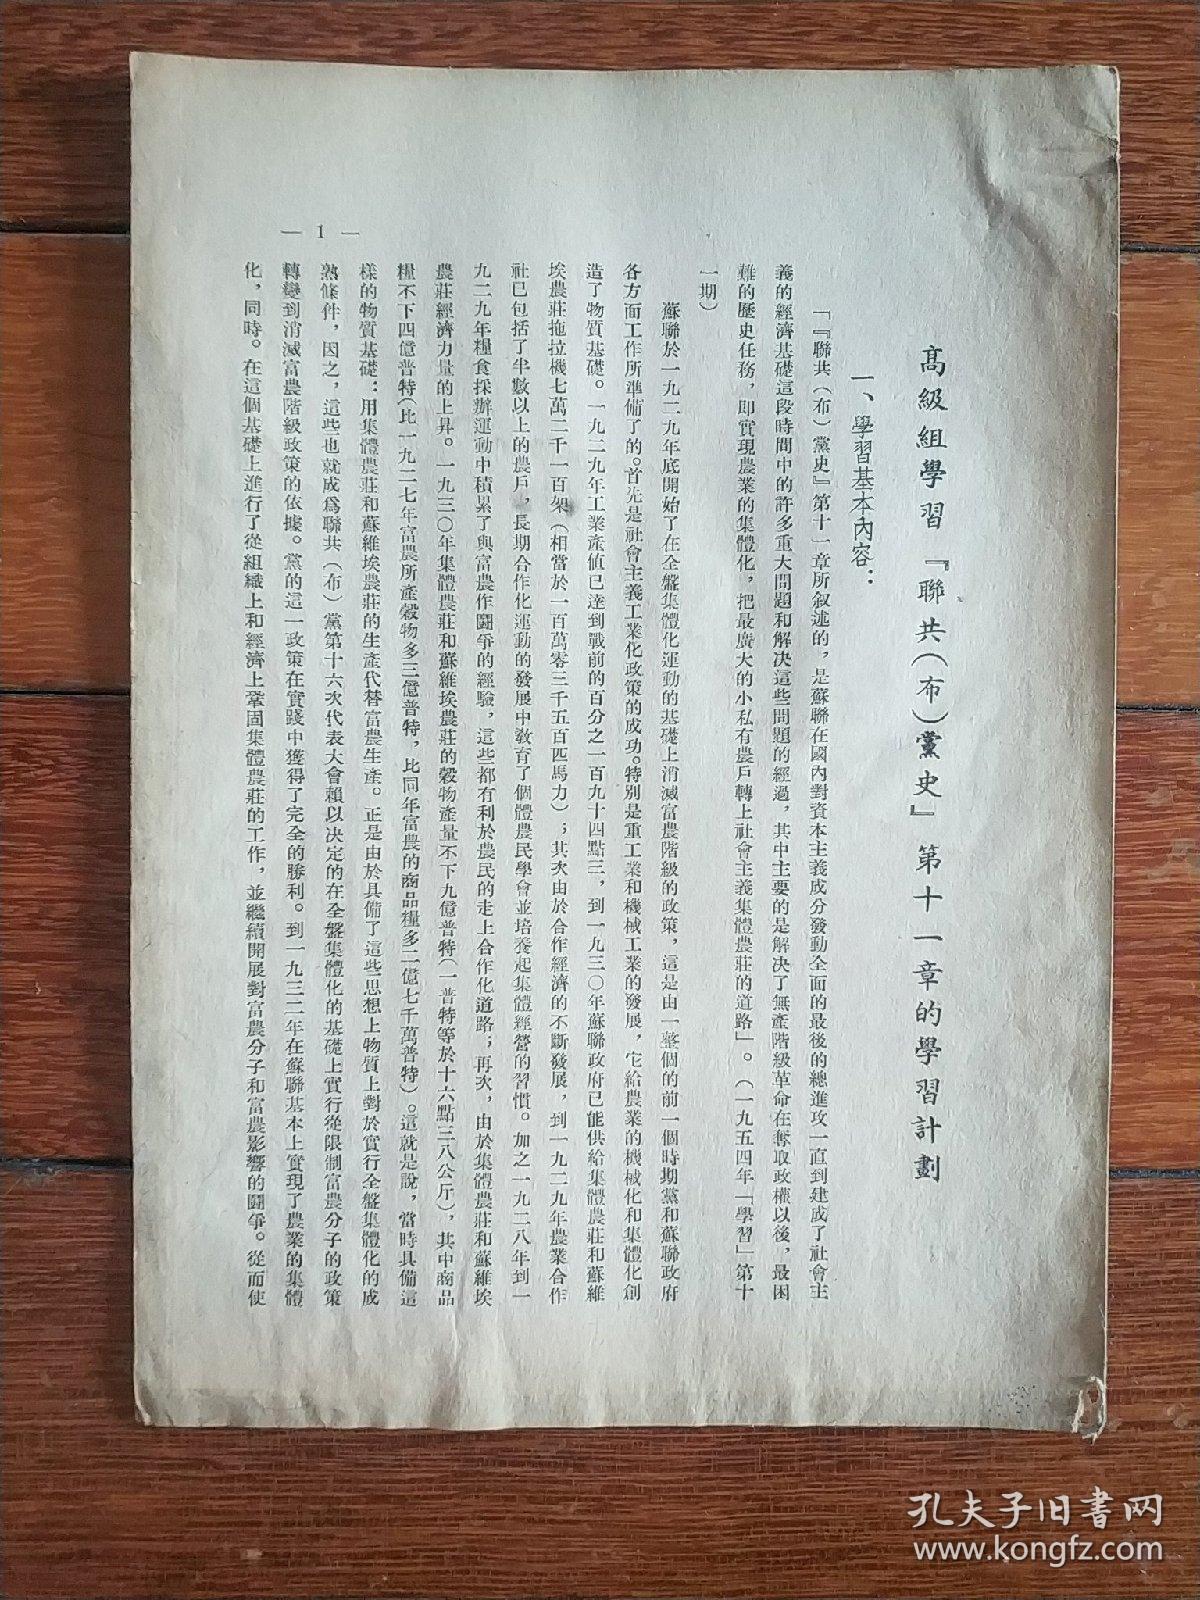 高級組學習『聯共（布）黨史』第十一章的學習計劃
一、學習基本內容：
「『聯共（布）黨史』第十一章所叙述的，是蘇聯在國內對資本主義成分發動全面的最後的總進攻一直到建成了社會主
義的經濟基礎這段時間中的許多重大問題和解决這些問題的經過，其中主要的是解决了無產階級革命在奪取政權以後，最困
難的歷史任務，即實現農業的集體化，把最廣大的小私有農戶轉上社會主義集體農莊的道路」。（一九五四年「學習」第十
一期）
蘇聯於一九二九年底開始了在全盤集體化運動的基礎上消滅富農階級的政策，這是由一整個的前一個時期黨和蘇聯政府
各方面工作所準備了的。首先是社會主義工業化政策的成功。特別是重工業和機械工業的發展，它給農業的機械化和集體化創
造了物質基礎。一九二九年工業產值已達到戰前的百分之一百九十四點三，到一九三〇年蘇聯政府已能供給集體農莊和蘇維
埃農莊拖拉機七萬二千一百架（相當於一百萬零三千五百匹馬力）；其次由於合作經濟的不斷發展，到一九二九年農業合作
社已包括了半數以上的農戶，長期合作化運動的發展中教育了個體農民學會並培養起集體經營的習慣。加之一九二八年到一
九二九年糧食採辦運動中積累了與富農作鬪爭的經驗，這些都有利於農民的走上合作化道路；再次，由於集體農莊和蘇維埃
農莊經濟力量的上昇。一九三〇年集體農莊和蘇維埃農莊的穀物產量不下九億普特（一普特等於十六點三八公斤），其中商品
糧不下四億普特（比一九二七年富農所產穀物多三億普特，比同年富農的商品糧多二億七千萬普特）。這就是說，當時具備這
樣的物質基礎：用集體農莊和蘇維埃農莊的生產代替富農生產。正是由於具備了這些思想上物質上對於實行全盤集體化的成
熟條件，因之，這些也就成爲聯共（布）黨第十六次代表大會賴以決定的在全盤集體化的基礎上實行從限制富農分子的政策
轉變到消滅富農階級政策的依據。黨的這一政策在實踐中獲得了完全的勝利。到一九三二年在蘇聯基本上實現了農業的集體
化，同時。在這個基礎上進行了從組織上和經濟上鞏固集體農莊的工作，並繼續開展對富農分子和富農影響的鬪爭。從而使
— 1 —
孔夫子旧书网
www.kongfz.com